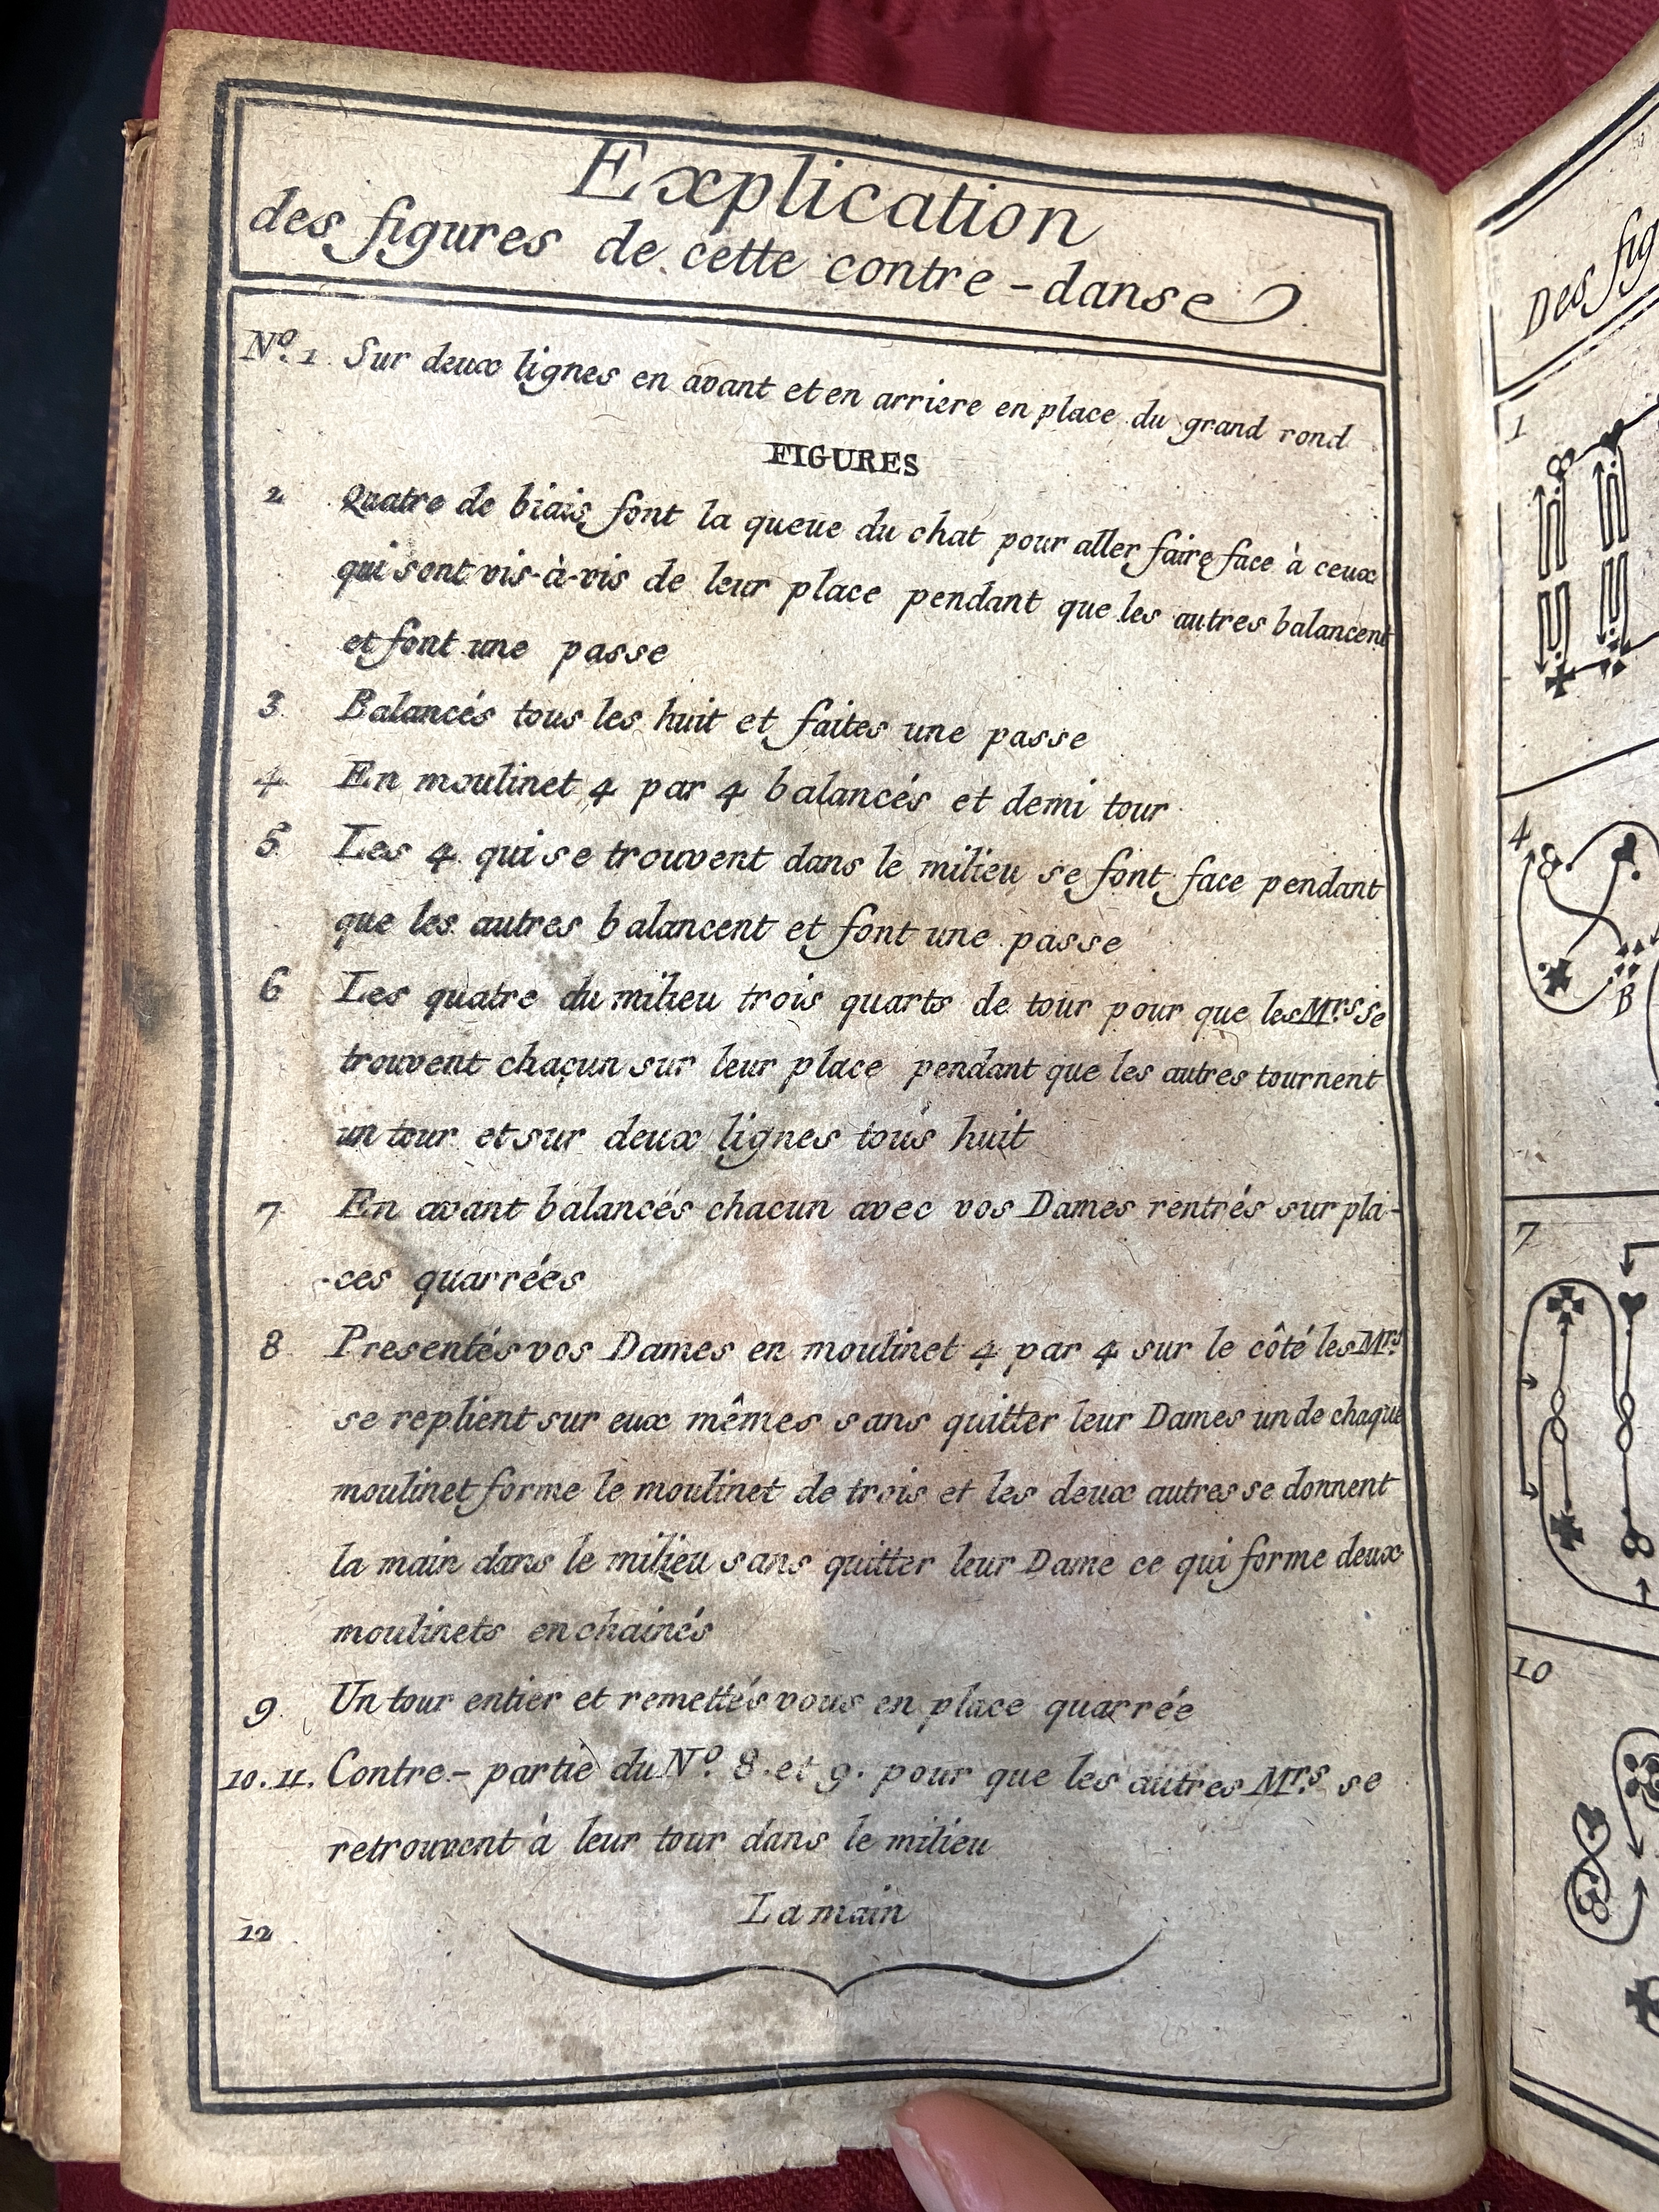 Explication
des figures de cette contre-danse
Nº. 1 Sur deux lignes en avant et en arriere en place du grand rond
FIGURES
2 Quatre de biais font la queue du chat pour aller faire face à ceux
qui sont vis-à-vis de leur place pendant que les autres balancent
et font une passe
3 Balancés tous les huit et faites une passe
4 En moulinet 4 par 4 balancés et demi tour
5 Les 4 qui se trouvent dans le milieu se font face pendant
que les autres balancent et font une passe
6 Les quatre du milieu trois quarts de tour pour que les Mrs se
trouvent chacun sur leur place pendant que les autres tournent
un tour et sur deux lignes tous huit
7 En avant balancés chacun avec vos Dames rentrés sur pla-
-ces quarrées
8 Presentés vos Dames en moulinet 4 par 4 sur le côté les Mrs
se replient sur eux mêmes sans quitter leur Dames un de chaque
moulinet forme le moulinet de trois et les deux autres se donnent
la main dans le milieu sans quitter leur Dame ce qui forme deux
moulinets enchainés
9 Un tour entier et remettés vous en place quarrée
10. 11. Contre-partie du Nº. 8. et 9. pour que les autres Mrs se
retrouvent à leur tour dans le milieu
12 La main
Des fig
1
4
B
7
10